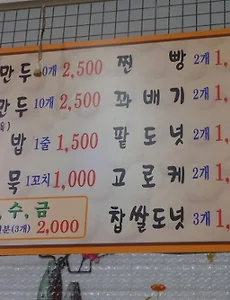 만두 0개 2,500 찐 빵 2개 1,
만두 10개 2,500 꽈배기 2개 1,
밥 1줄 1,500 팥도넛 2개 1,
묵 1꼬치 1,000 고로케 2개 1,
, 수, 금 찹쌀도넛 3개 1,
분(3개) 2,000